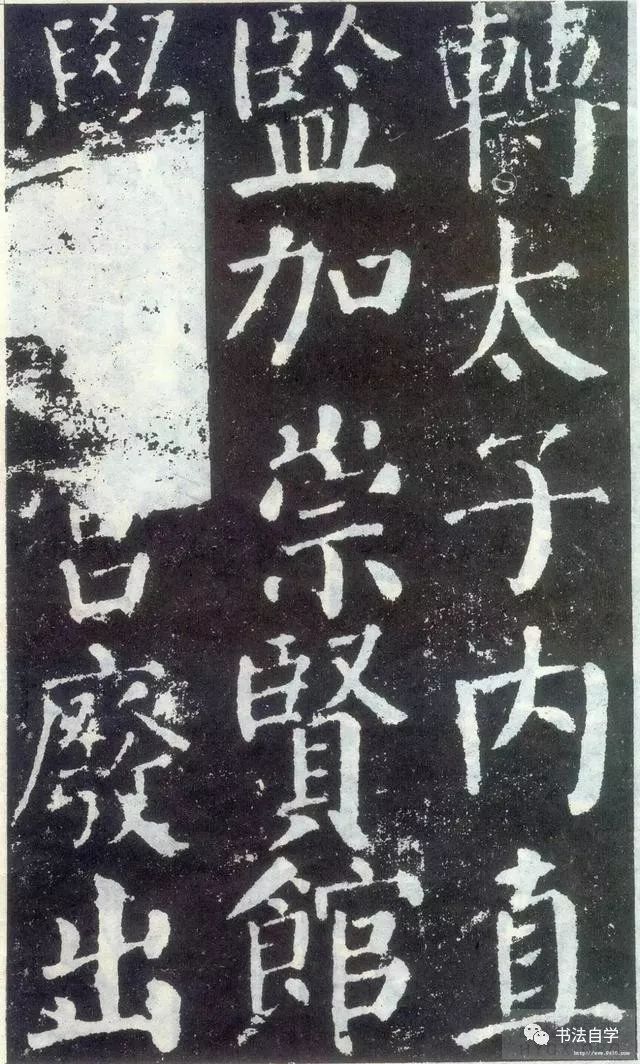 轉太子内直
監加崇賢館
廢出
书法自学